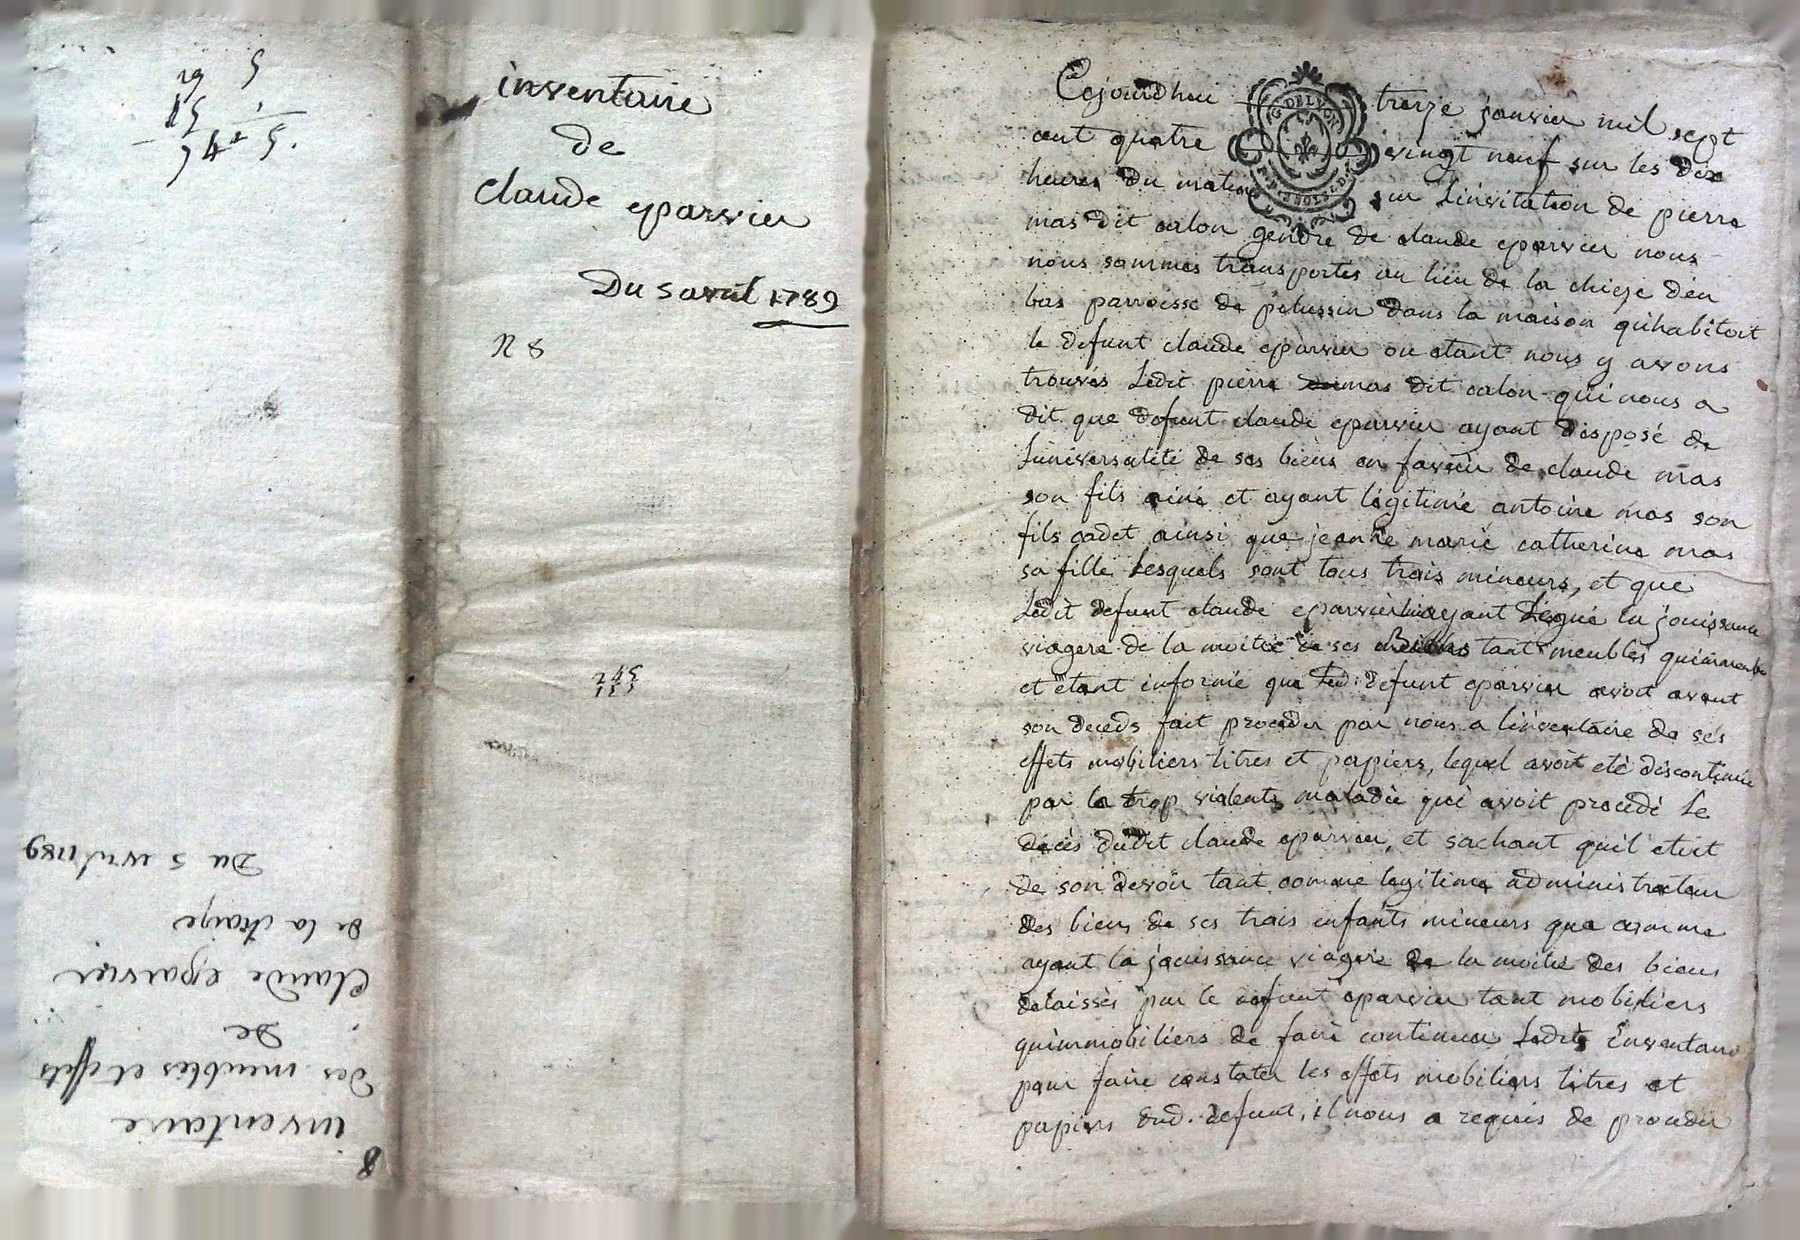 19 5
15
7425.
inventaire
de
claude eparvier
Du 5 avril 1789
N 8
245
115
8
inventaire
des meubles et effets
de
Claude eparvier
de la chaize
Du 5 avril 1789
G. DE LYON
Cejourdhui treize janvier mil sept
cent quatre vingt neuf sur les dix
heures du matin sur Linvitation de pierre
mas dit calon gendre de claude eparvier nous
nous sommes transportés au lieu de la chieze den
bas parroisse de pelussin dans la maison quhabitoit
le defunt claude eparvier ou etant nous y avons
trouvés Ledit pierre mas dit calon qui nous a
dit que defunt claude eparvier ayant disposé de
Luniversalité de ses biens en faveur de claude mas
son fils ainé et ayant légitimé antoine mas son
fils cadet ainsi que jeanne marie catherine mas
sa fille Lesquels sont tous trois mineurs, et que
Ledit defunt claude eparvier luy ayant Légué la jouissance
viagere de la moitié de ses Biens tant meubles quimmeubles
et étant informé que Led. defunt eparvier avoit avant
son deceds fait proceder par nous a linventaire de ses
effets mobiliers titres et papiers, lequel avoit eté discontinué
par la trop violente maladie qui avoit precedé Le
décés dudit claude eparvier, et sachant quil etoit
de son devoir tant comme legitime administrateur
des biens de ses trois enfants mineurs que comme
ayant la jouissance viagere de la moitié des biens
delaissés par le defunt eparvier tant mobiliers
quimmobiliers de faire continuer Ledit Inventaire
pour faire constater les effets mobiliers titres et
papiers dud. defunt, il nous a requis de proceder